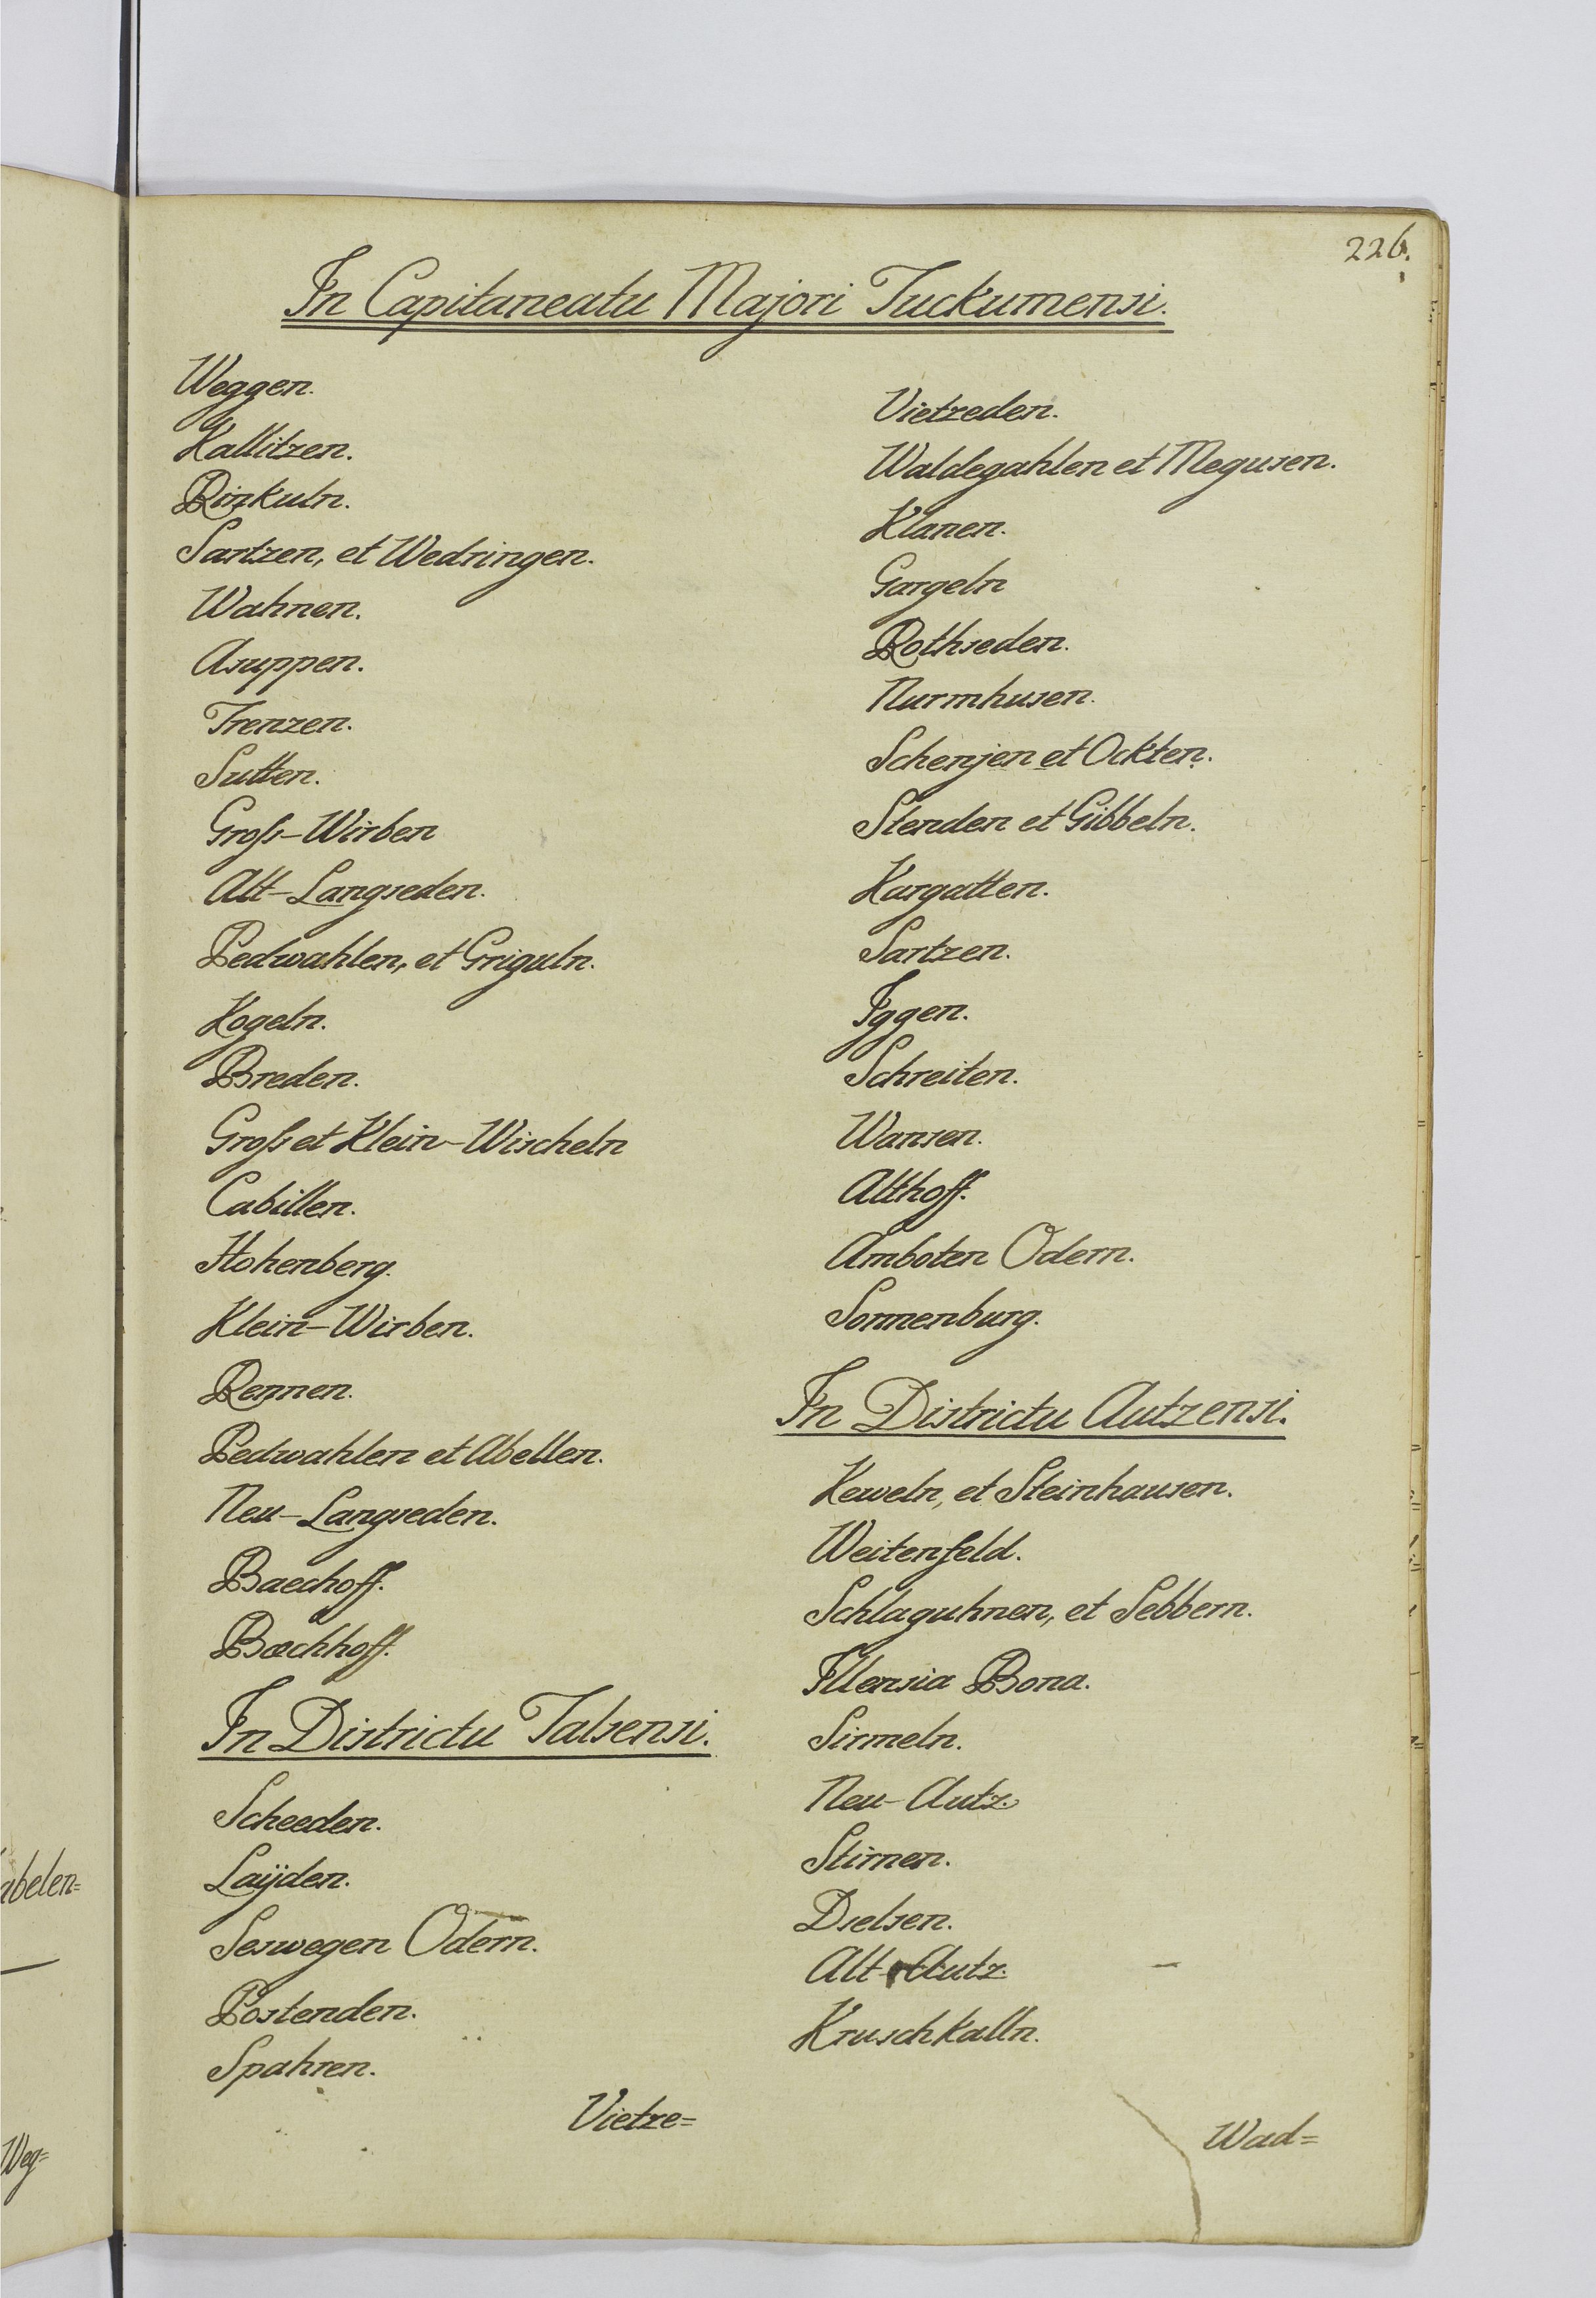 226.
In Capitaneatu Majori Tuckumensi.
Weggen.
Kallitzen.
Rinkuln.
Sartzen, et Wedringen.
Wahnen.
Asuppen.
Frenzen.
Sutten.
Groſs-Wirben
Alt-Langseden.
Pedwahlen, et Griguln.
Kogeln.
Breden.
Groſs et Klein-Wischeln
Cabillen.
Hohenberg.
Klein-Wirben.
Rennen.
Pedwahlen et Abellen.
Neu-Langseden.
Baechoff.
Bæchhoff.
In Districtu Talsensi.
Scheeden.
Laÿden.
Seswegen Odern.
Postenden.
Spahren.
Vietze=
Vietzeden.
Waldegahlen et Megusen.
Klanen.
Gargeln
Rothseden.
Nurmhusen.
Schenjen et Ockten.
Stenden et Gibbeln.
Kurgatten.
Sartzen.
Iggen.
Schreiten.
Wansen.
Althoff.
Amboten Odern.
Sonnenburg.
In Districtu Autzensi.
Keweln, et Steinhausen.
Weitenfeld.
Schlaguhnen, et Sebbern.
Illensia Bona.
Sirmeln.
Neu-Autz.
Stirnen.
Dselsen.
Alt-Autz.
Kruschkalln.
Wad=
abelen=
Weg=